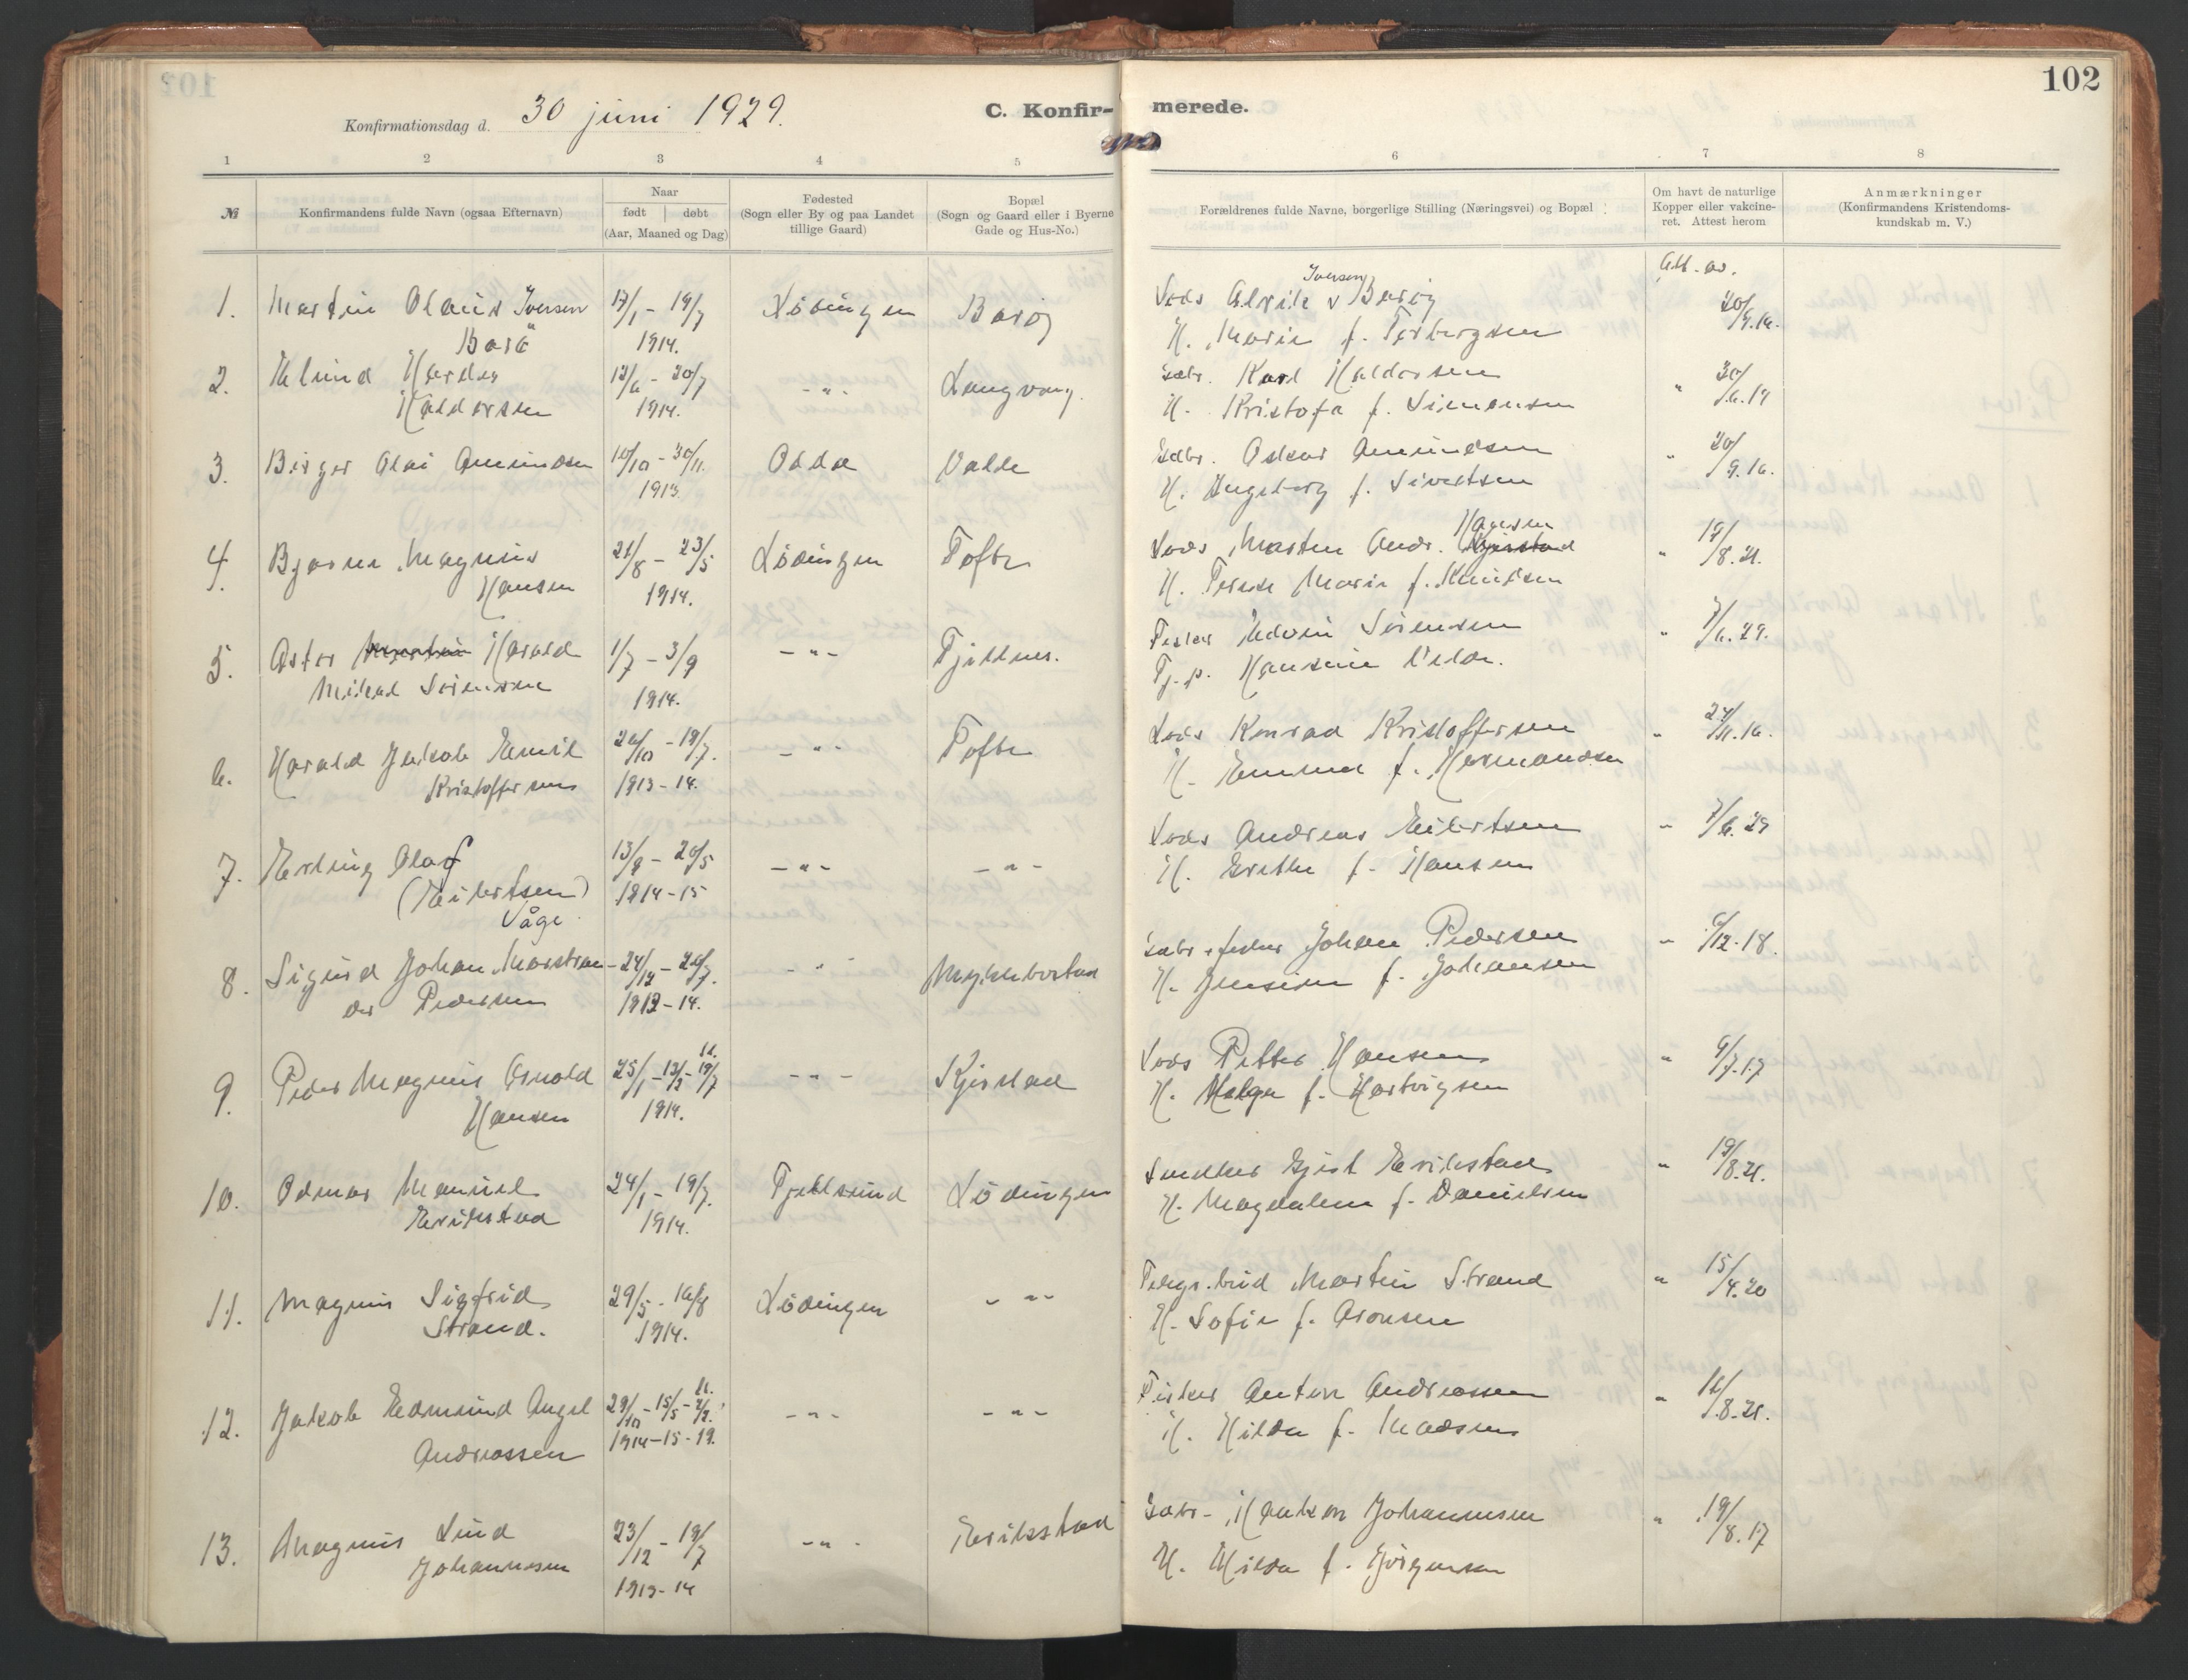 102
Konfirmationsdag d. 30 juni 1929.
C. Konfirmerede.
1 2 3 4 5 6 7 8
№
Konfirmandens fulde Navn (ogsaa Efternavn)
Naar
født døbt
(Aar, Maaned og Dag)
Fødested
(Sogn eller By og paa Landet
tillige Gaard)
Bopæl
(Sogn og Gaard eller i Byerne
Gade og Hus-No.)
Forældrenes fulde Navne, borgerlige Stilling (Næringsvei) og Bopæl
Om havt de naturlige
Kopper eller vakcine-
ret. Attest herom
Anmærkninger
(Konfirmandens Kristendoms-
kundskab m. V.)
Att. av.
1. Martin Olaus Iversen 17/1 - 19/7 Lödingen Barøy Lods Alrik Iversen Barøy 20/9.16.
Barö 1914. H. Marie f. Torbergsen
2. Eklund Hardes 12/6 - 20/7 - " - Langvang. Gdbr. Karl Haldorsen " 30/6.19
Haldorsen 1914. H. Kristofa f. Simonsen
3. Birger Olai Amundsen 10/10 - 30/11. Odda Valle Gdbr. Oskar Amundsen " 20/9.16.
1913. H. Ingeborg f. Sivertsen
4. Bjarne Magnus 21/8 - 23/5 Lödingen Tofte Lods Marten Andr. Hansen " 17/8.21.
Hansen 1914. H. Terese Marie f. Knudsen
5. Astor Harald 1/7 - 3/9 - " - Fjeldnes. Fisker Edvin Sörensen " 7/6.29.
Mikal Sörensen 1914. Tj.p. Hansine
6. Harald Jakob Emil 26/10 - 19/7. - " - Tofte Lods Konrad Kristoffersen " 24/11.16.
Kristoffersen 1913-14. H. Emma f. Hermandsen
7. Erling Olaf 13/9 - 20/5 - " - - " - Lods Andreas Eilertsen " 7/6.29
(Eilertsen) 1914-15 H. Grethe f. Hansen
Våge
8. Sigurd Johan Marstran- 24/12 - 20/7. - " - Myklebostad Gdbr. & fisker Johan Pedersen " 6/12.18.
der Pedersen 1913-14. H. Jensine f. Johansen
9. Peder Magnus Arnold 25/1 - 13/2 - 19/7 - " - Kjerstad Lods Petter Hansen " 9/7.17
Hansen 1914. H. Helga f. Hartvigsen
10. Odmar Manuel 24/1 - 19/7. Tjeldsund Lödingen Snekker Gjert Erikstad " 19/8.21.
Erikstad 1914. H. Magdalene f. Danielsen
11. Magnus Sigfrid 29/5 - 16/8 Lödingen - " - Telegr.bud Martin Strand " 15/4.20
Strand. 1914. H. Sofie f. Aronsen
12. Jakob Edmund Angel 29/10 - 15/5 - - " - - " - Fisker Anton Andreassen " 16/8.21.
Andreassen 1914-15-19. H. Hilda f. Madsen
13. Magnus Lind 23/12 - 19/7 - " - Erikstad Gdbr. Haakon Johannesen " 19/8.17
Johannesen 1913-14 H. Hilda f. Jörgensen